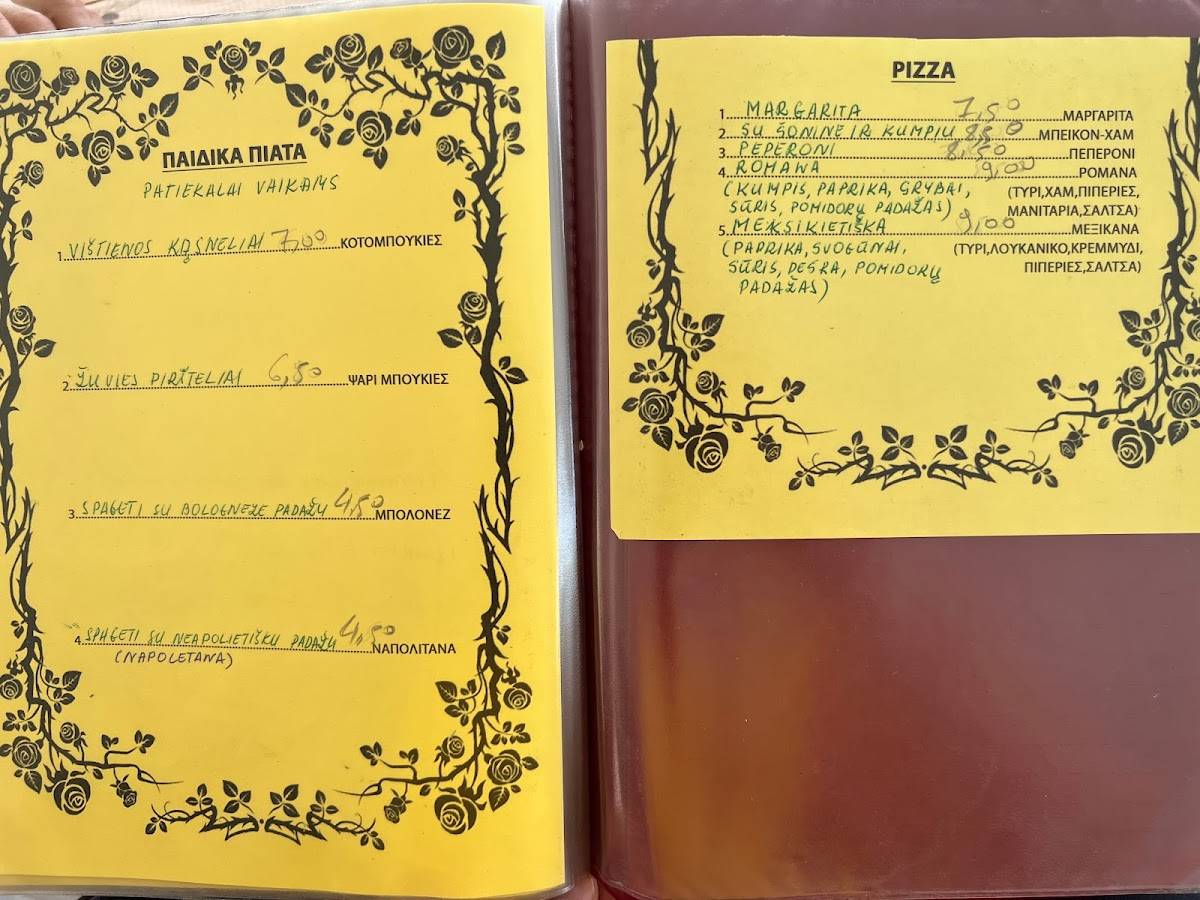 ΠΑΙΔΙΚΑ ΠΙΑΤΑ
PATIEKALAI VAIKAMS
1 VIŠTIENOS KĄSNELIAI 7,00 ΚΟΤΟΜΠΟΥΚΙΕΣ
2 ŽUVIES PIRŠTELIAI 6,50 ΨΑΡΙ ΜΠΟΥΚΙΕΣ
3 SPAGETI SU BOLOGNEZE PADAŽU 4,50 ΜΠΟΛΟΝΕΖ
4 SPAGETI SU NEAPOLIETIŠKU PADAŽU 4,50 ΝΑΠΟΛΙΤΑΝΑ
(NAPOLETANA)
PIZZA
1 MARGARITA 7,50 ΜΑΡΓΑΡΙΤΑ
2 SU ŠONINE IR KUMPIU 8,50 ΜΠΕΙΚΟΝ-ΧΑΜ
3 PEPERONI 8,50 ΠΕΠΕΡΟΝΙ
4 ROMANA 9,00 ΡΟΜΑΝΑ
(KUMPIS, PAPRIKA, GRYBAI, (ΤΥΡΙ,ΧΑΜ,ΠΙΠΕΡΙΕΣ,
SŪRIS, POMIDORŲ PADAŽAS) ΜΑΝΙΤΑΡΙΑ,ΣΑΛΤΣΑ)
5 MEKSIKIETIŠKA 9,00 ΜΕΞΙΚΑΝΑ
(PAPRIKA, SVOGŪNAI, (ΤΥΡΙ,ΛΟΥΚΑΝΙΚΟ,ΚΡΕΜΜΥΔΙ,
SŪRIS, DEŠRA, POMIDORŲ ΠΙΠΕΡΙΕΣ,ΣΑΛΤΣΑ)
PADAŽAS)